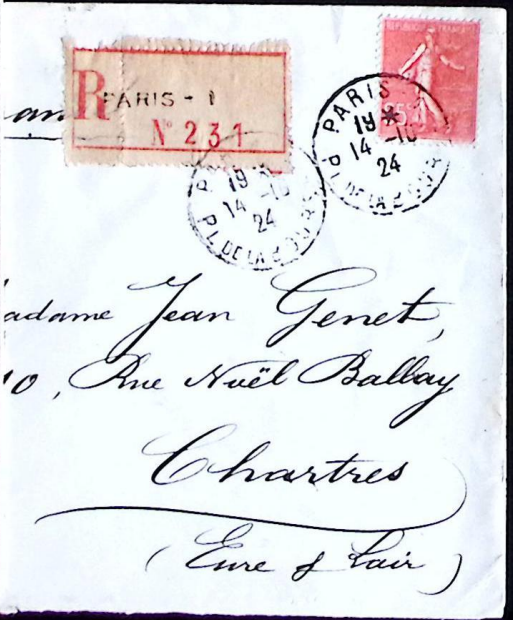 RÉPUBLIQUE FRANÇAISE
R PARIS - 1
N° 231
PARIS
19 *
14 -10
24
PL. DE LA BOURSE
19
14 -10
24
PL. DE LA BOURSE
adame Jean Genet,
10, Rue Noël Ballay
Chartres
(Eure & Loir)